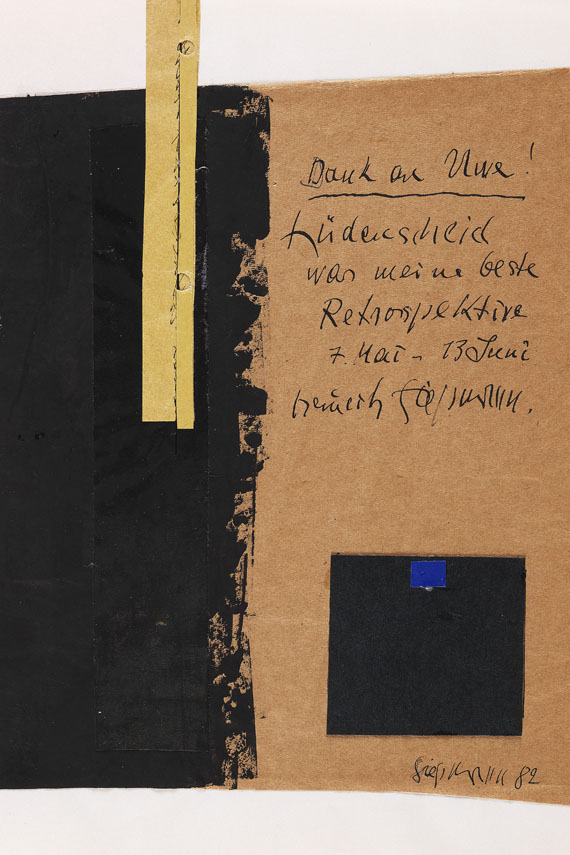 Dank an Uwe!
Lüdenscheid
war meine beste
Retrospektive
7. Mai - 13 Juni
Heinrich Siepmann.
Siepmann 82